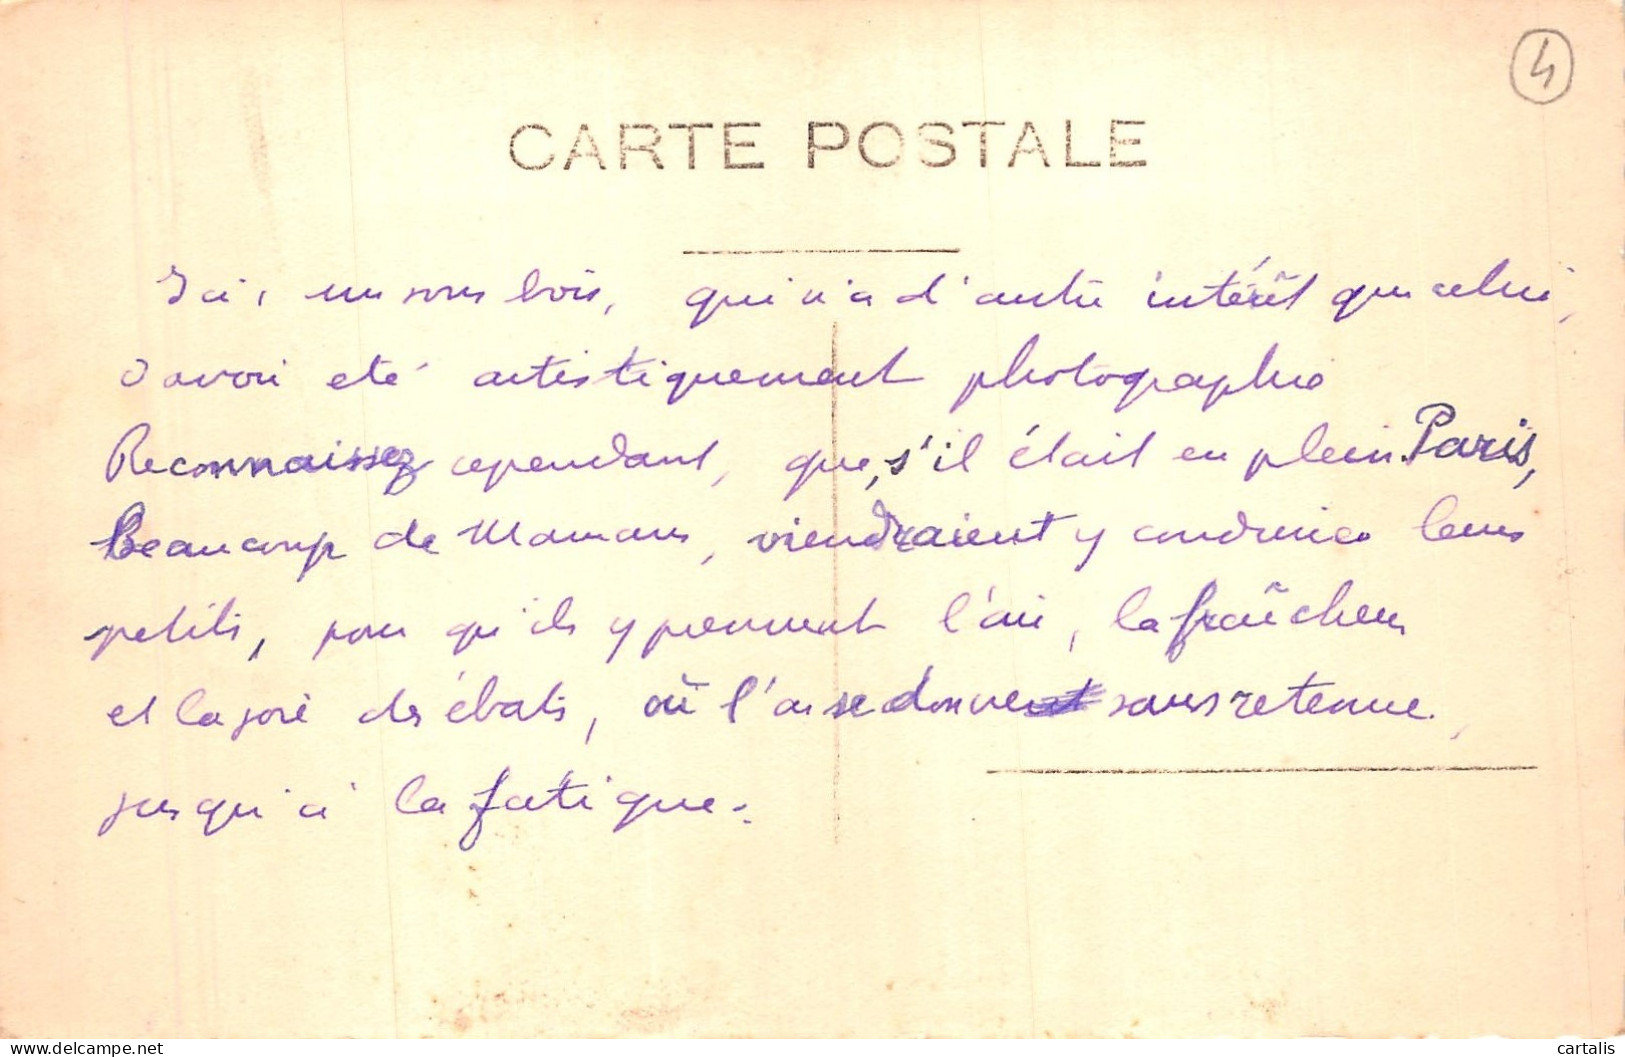 4
CARTE POSTALE
Ici, un sous bois, qui n'a d'autre intérêt que celui,
d'avoir été artistiquement photographié
Reconnaissez cependant, que, s'il était en plein Paris,
Beaucoup de Mamans, viendraient y conduire leurs
petits, pour qu'ils y prennent l'air, la fraîcheur
et la joie des ébats, où l'on se donne sans retenue,
jusqu'à la fatigue.
www.delcampe.net
cartalis